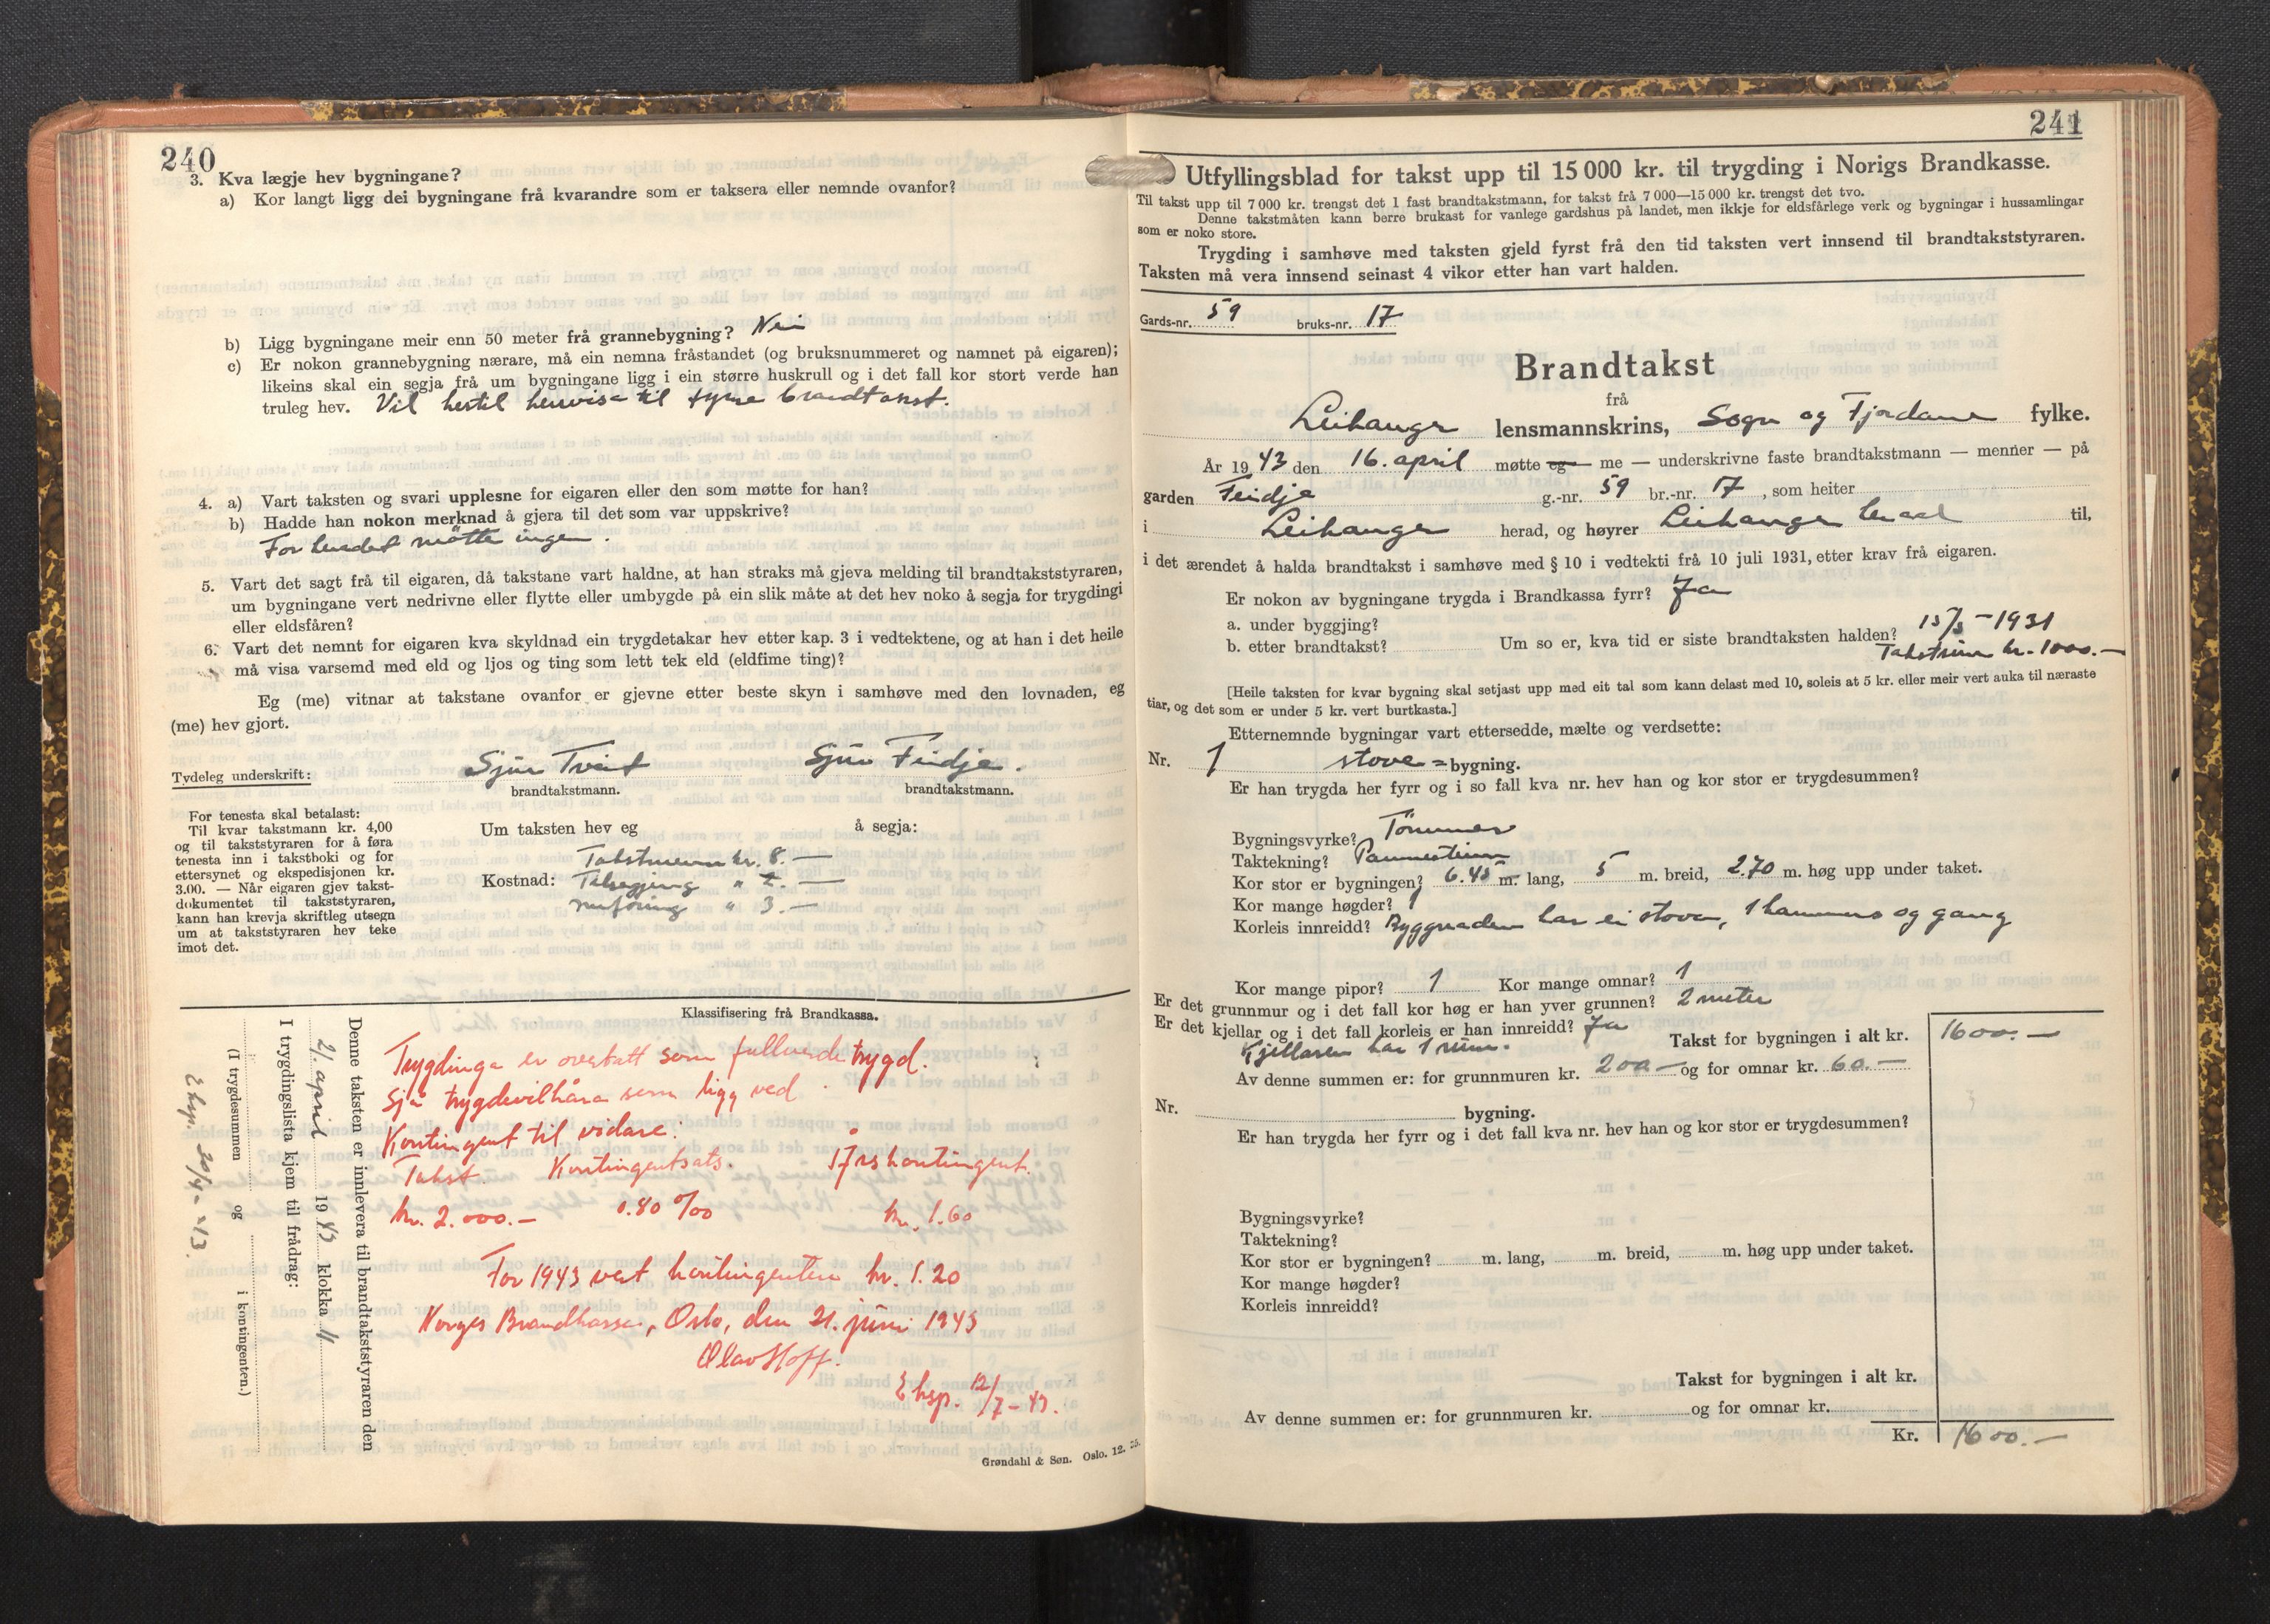 240
3. Kva lægje hev bygningane?
a) Kor langt ligg dei bygningane frå kvarandre som er taksera eller nemnde ovanfor?
b) Ligg bygningane meir enn 50 meter frå grannebygning? Nei
c) Er nokon grannebygning nærare, må ein nemna fråstandet (og bruksnummeret og namnet på eigaren);
likeins skal ein segja frå um bygningane ligg i ein større huskrull og i det fall kor stort verde han
truleg hev. Vil hertil henvise til fyrre brandtakst.
4. a) Vart taksten og svari upplesne for eigaren eller den som møtte for han?
b) Hadde han nokon merknad å gjera til det som var uppskrive?
For heradet møtte ingen.
5. Vart det sagt frå til eigaren, då takstane vart haldne, at han straks må gjeva melding til brandtakststyraren,
um bygningane vert nedrivne eller flytte eller umbygde på ein slik måte at det hev noko å segja for trygdingi
eller eldsfåren?
6. Vart det nemnt for eigaren kva skyldnad ein trygdetakar hev etter kap. 3 i vedtektene, og at han i det heile
må visa varsemd med eld og ljos og ting som lett tek eld (eldfime ting)?
Eg (me) vitnar at takstane ovanfor er gjevne etter beste skyn i samhøve med den lovnaden, eg
(me) hev gjort.
Tydeleg underskrift: Sjur Tveit Sjur Feidje.
brandtakstmann. brandtakstmann.
For tenesta skal betalast:
Til kvar takstmann kr. 4,00
og til takststyraren for å føra
tenesta inn i takstboki og for
ettersynet og ekspedisjonen kr.
3.00. — Når eigaren gjev takst-
dokumentet til takststyraren,
kann han krevja skriftleg utsegn
um at takststyraren hev teke
imot det.
Um taksten hev eg å segja:
Takstmenn kr. 8.—
Kostnad: Tilsegjing " 2.—
innføring " 3.—
Klassifisering frå Brandkassa.
Trygdinga er overtatt som fullverde trygd.
Sjå trygdevilkåra som ligg ved
Kontingent til vidare:
Takst. Kontingentsats. Årskontingent.
kr. 2.000.— 0.80 ‰ kr. 1.60
For 1943 vert kontingenten kr. 1.20
Norges Brandkasse, Oslo, den 21. juni 1943
Olav Hoff.
Eksp. 12/7-43.
Denne taksten er innlevera til brandtakststyraren den
21. april 1943 klokka 11
I trygdingslista kjem til frådrag:
(I trygdesummen og i kontingenten.)
Eksp. 30/4-43.
Grøndahl & Søn. Oslo. 12. 35.
241
Utfyllingsblad for takst upp til 15 000 kr. til trygding i Norigs Brandkasse.
Til takst upp til 7 000 kr. trengst det 1 fast brandtakstmann, for takst frå 7 000—15 000 kr. trengst det tvo.
Denne takstmåten kann berre brukast for vanlege gardshus på landet, men ikkje for eldsfårlege verk og bygningar i hussamlingar
som er noko store.
Trygding i samhøve med taksten gjeld fyrst frå den tid taksten vert innsend til brandtakststyraren.
Taksten må vera innsend seinast 4 vikor etter han vart halden.
Gards-nr. 59 bruks-nr. 17
Brandtakst
frå
Leikanger lensmannskrins, Sogn og Fjordane fylke.
År 1943 den 16. april møtte eg — me — underskrivne faste brandtakstmann — menner — på
garden Feidje g.-nr. 59 br.-nr. 17, som heiter
i Leikanger herad, og høyrer Leikanger herad til,
i det ærendet å halda brandtakst i samhøve med § 10 i vedtekti frå 10 juli 1931, etter krav frå eigaren.
Er nokon av bygningane trygda i Brandkassa fyrr? Ja
a. under byggjing?
b. etter brandtakst? Um so er, kva tid er siste brandtaksten halden? 15/3-1931
Takstsum kr. 1000.—
[Heile taksten for kvar bygning skal setjast upp med eit tal som kann delast med 10, soleis at 5 kr. eller meir vert auka til næraste
tiar, og det som er under 5 kr. vert burtkasta.]
Etternemnde bygningar vart ettersedde, mælte og verdsette:
Nr. 1 stove = bygning.
Er han trygda her fyrr og i so fall kva nr. hev han og kor stor er trygdesummen?
Bygningsvyrke? Tömmer
Taktekning? Pannestein
Kor stor er bygningen? 6.45 m. lang, 5 m. breid, 2.70 m. høg upp under taket.
Kor mange høgder? 1
Korleis innreidd? Byggnaden har ei stova, 1 kammers og gang
Kor mange pipor? 1 Kor mange omnar? 1
Er det grunnmur og i det fall kor høg er han yver grunnen? 2 meter
Er det kjellar og i det fall korleis er han innreidd? Ja
Kjellaren har 1 rum. Takst for bygningen i alt kr. 1600.—
Av denne summen er: for grunnmuren kr. 200.— og for omnar kr. 60.—
Nr. bygning.
Er han trygda her fyrr og i det fall kva nr. hev han og kor stor er trygdesummen?
Bygningsvyrke?
Taktekning?
Kor stor er bygningen? m. lang, m. breid, m. høg upp under taket.
Kor mange høgder?
Korleis innreidd?
Takst for bygningen i alt kr.
Av denne summen er: for grunnmuren kr. og for omnar kr.
Kr. 1600.—